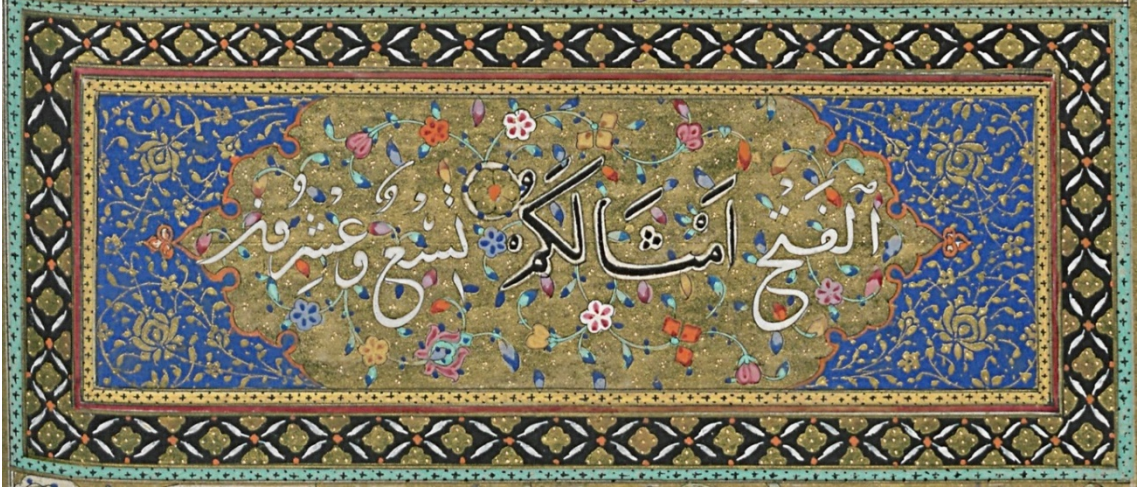 اَلْفَتْحِ اَمْثَالَكُمْ تِسْعٌ وَعِشْرُونَ